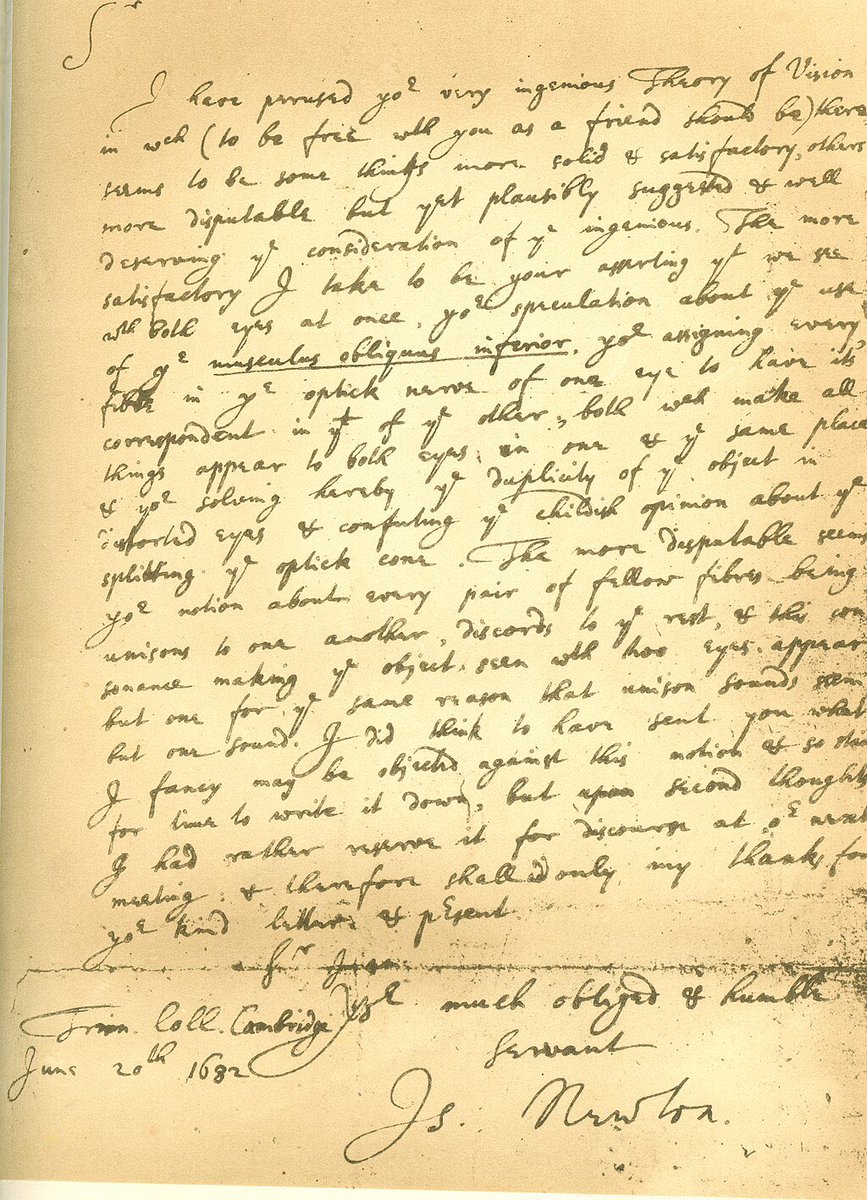 Sr
I have perused yor very ingenious Theory of Vision
in wch (to be free wth you as a friend should be) there
seems to be some things more solid & satisfactory, others
more disputable but yet plausibly suggested & well
deserving ye consideration of ye ingenious. The more
satisfactory I take to be your asserting yt we see
wth both eyes at once, yor speculation about ye use
of ye musculus obliquus inferior, yor assigning every
fibre in ye optick nerve of one eye to have its
correspondent in yt of ye other, both wch make all
things appear to both eyes in one & ye same place
& yor solving hereby ye duplicity of ye object in
distorted eyes & confuting ye childish opinion about ye
splitting ye optick cone. The more disputable seems
yor notion about every pair of fellow fibres being
unisons to one another, discords to ye rest, & this con
sonance making ye object seen wth two eyes appear
but one for ye same reason that unison sounds seem
but one sound. I did think to have sent you what
I fancy may be objected against this notion & so staid
for time to write it down, but upon second thoughts
I had rather reserve it for discourse at or next
meeting: & therefore shall add only my thanks for
yor kind letter & present.
Sr
Yor much obliged & humble
Servant
Trin. Coll. Cambridge
June 20th 1682
Is. Newton.